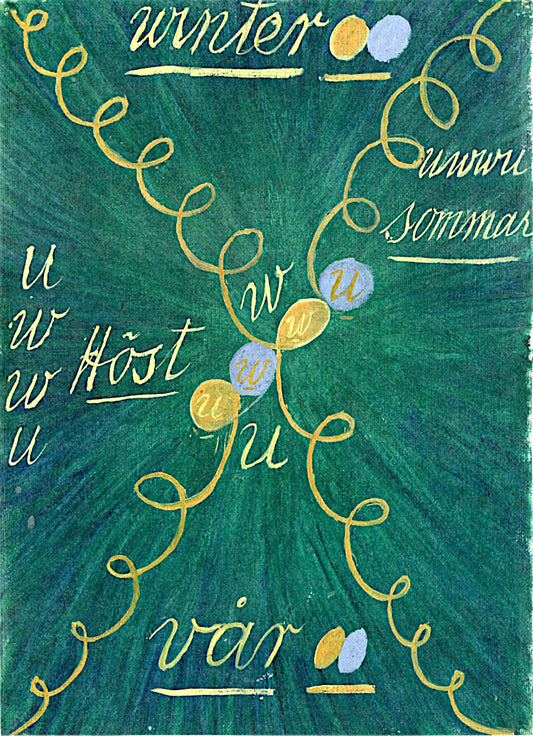 winter
uwwu
sommar
w
u
w
w
u
u
w
w
u
Höst
u
vår